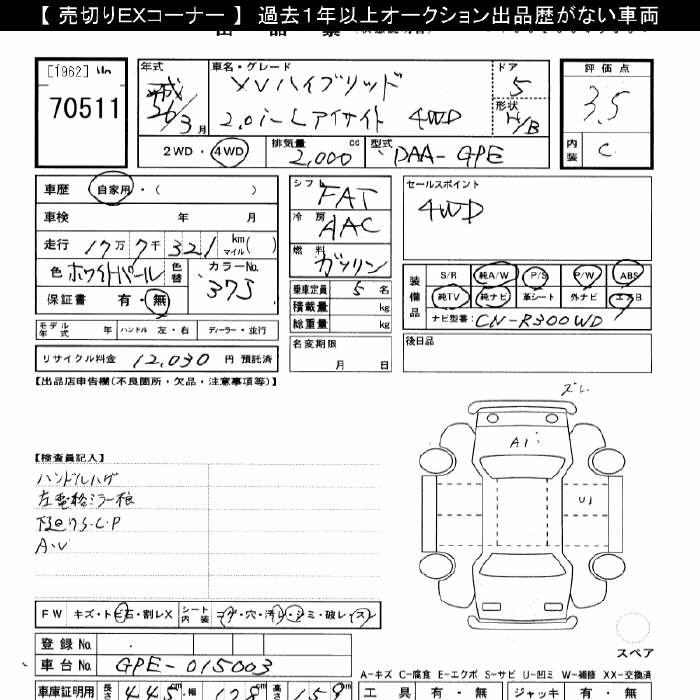 【 売切りEXコーナー 】 過去1年以上オークション出品歴がない車両
[1962]
70511
年式
26/3月
車名・グレード
XVハイブリッド
2.0i-Lアイサイト 4WD
ドア
5
形状
H/B
評価点
3.5
内装 C
2WD・4WD
排気量 2,000 cc
型式 DAA-GPE
車歴 自家用・( )
車検 年 月
走行 17万 7千 321 km マイル( )
色 ホワイトパール 色替
カラーNo. 37J
保証書 有・無
モデル年式 年 ハンドル 左・右 ディーラー・並行
リサイクル料金 12,030 円 預託済
シフト FAT
冷房 AAC
燃料 ガソリン
乗車定員 5 名
積載量 kg
総重量 kg
名変期限
月 日
セールスポイント
4WD
装備品
S/R 純A/W P/S P/W ABS
純TV 純ナビ 革シート 外ナビ エアB
ナビ型番: CN-R300WD
後日品
【出品店申告欄(不良箇所・欠品・注意事項等)】
ズレ
A1
U1
【検査員記入】
ハンドルハゲ
左電格ミラー
下廻りS.C.P
A.U
FW キズ・トビ石・割レX シート内装 コゲ・穴・汚レ・シミ・破レ・スレ
スペア
登録No.
車台No. GPE-015003
A-キズ C-腐食 E-エクボ S-サビ U-凹ミ W-補修 XX-交換済
車庫証明用 長さ 445 cm 幅 178 cm 高さ 159
工具 有・無 ジャッキ 有・無